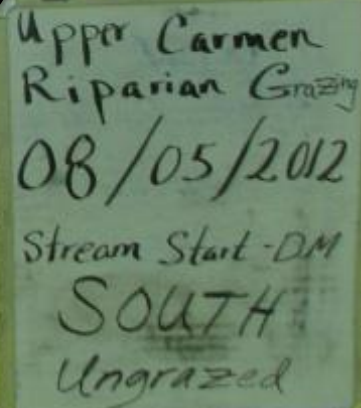 Upper Carmen
Riparian Grazing
08/05/2012
Stream Start-DM
SOUTH
Ungrazed